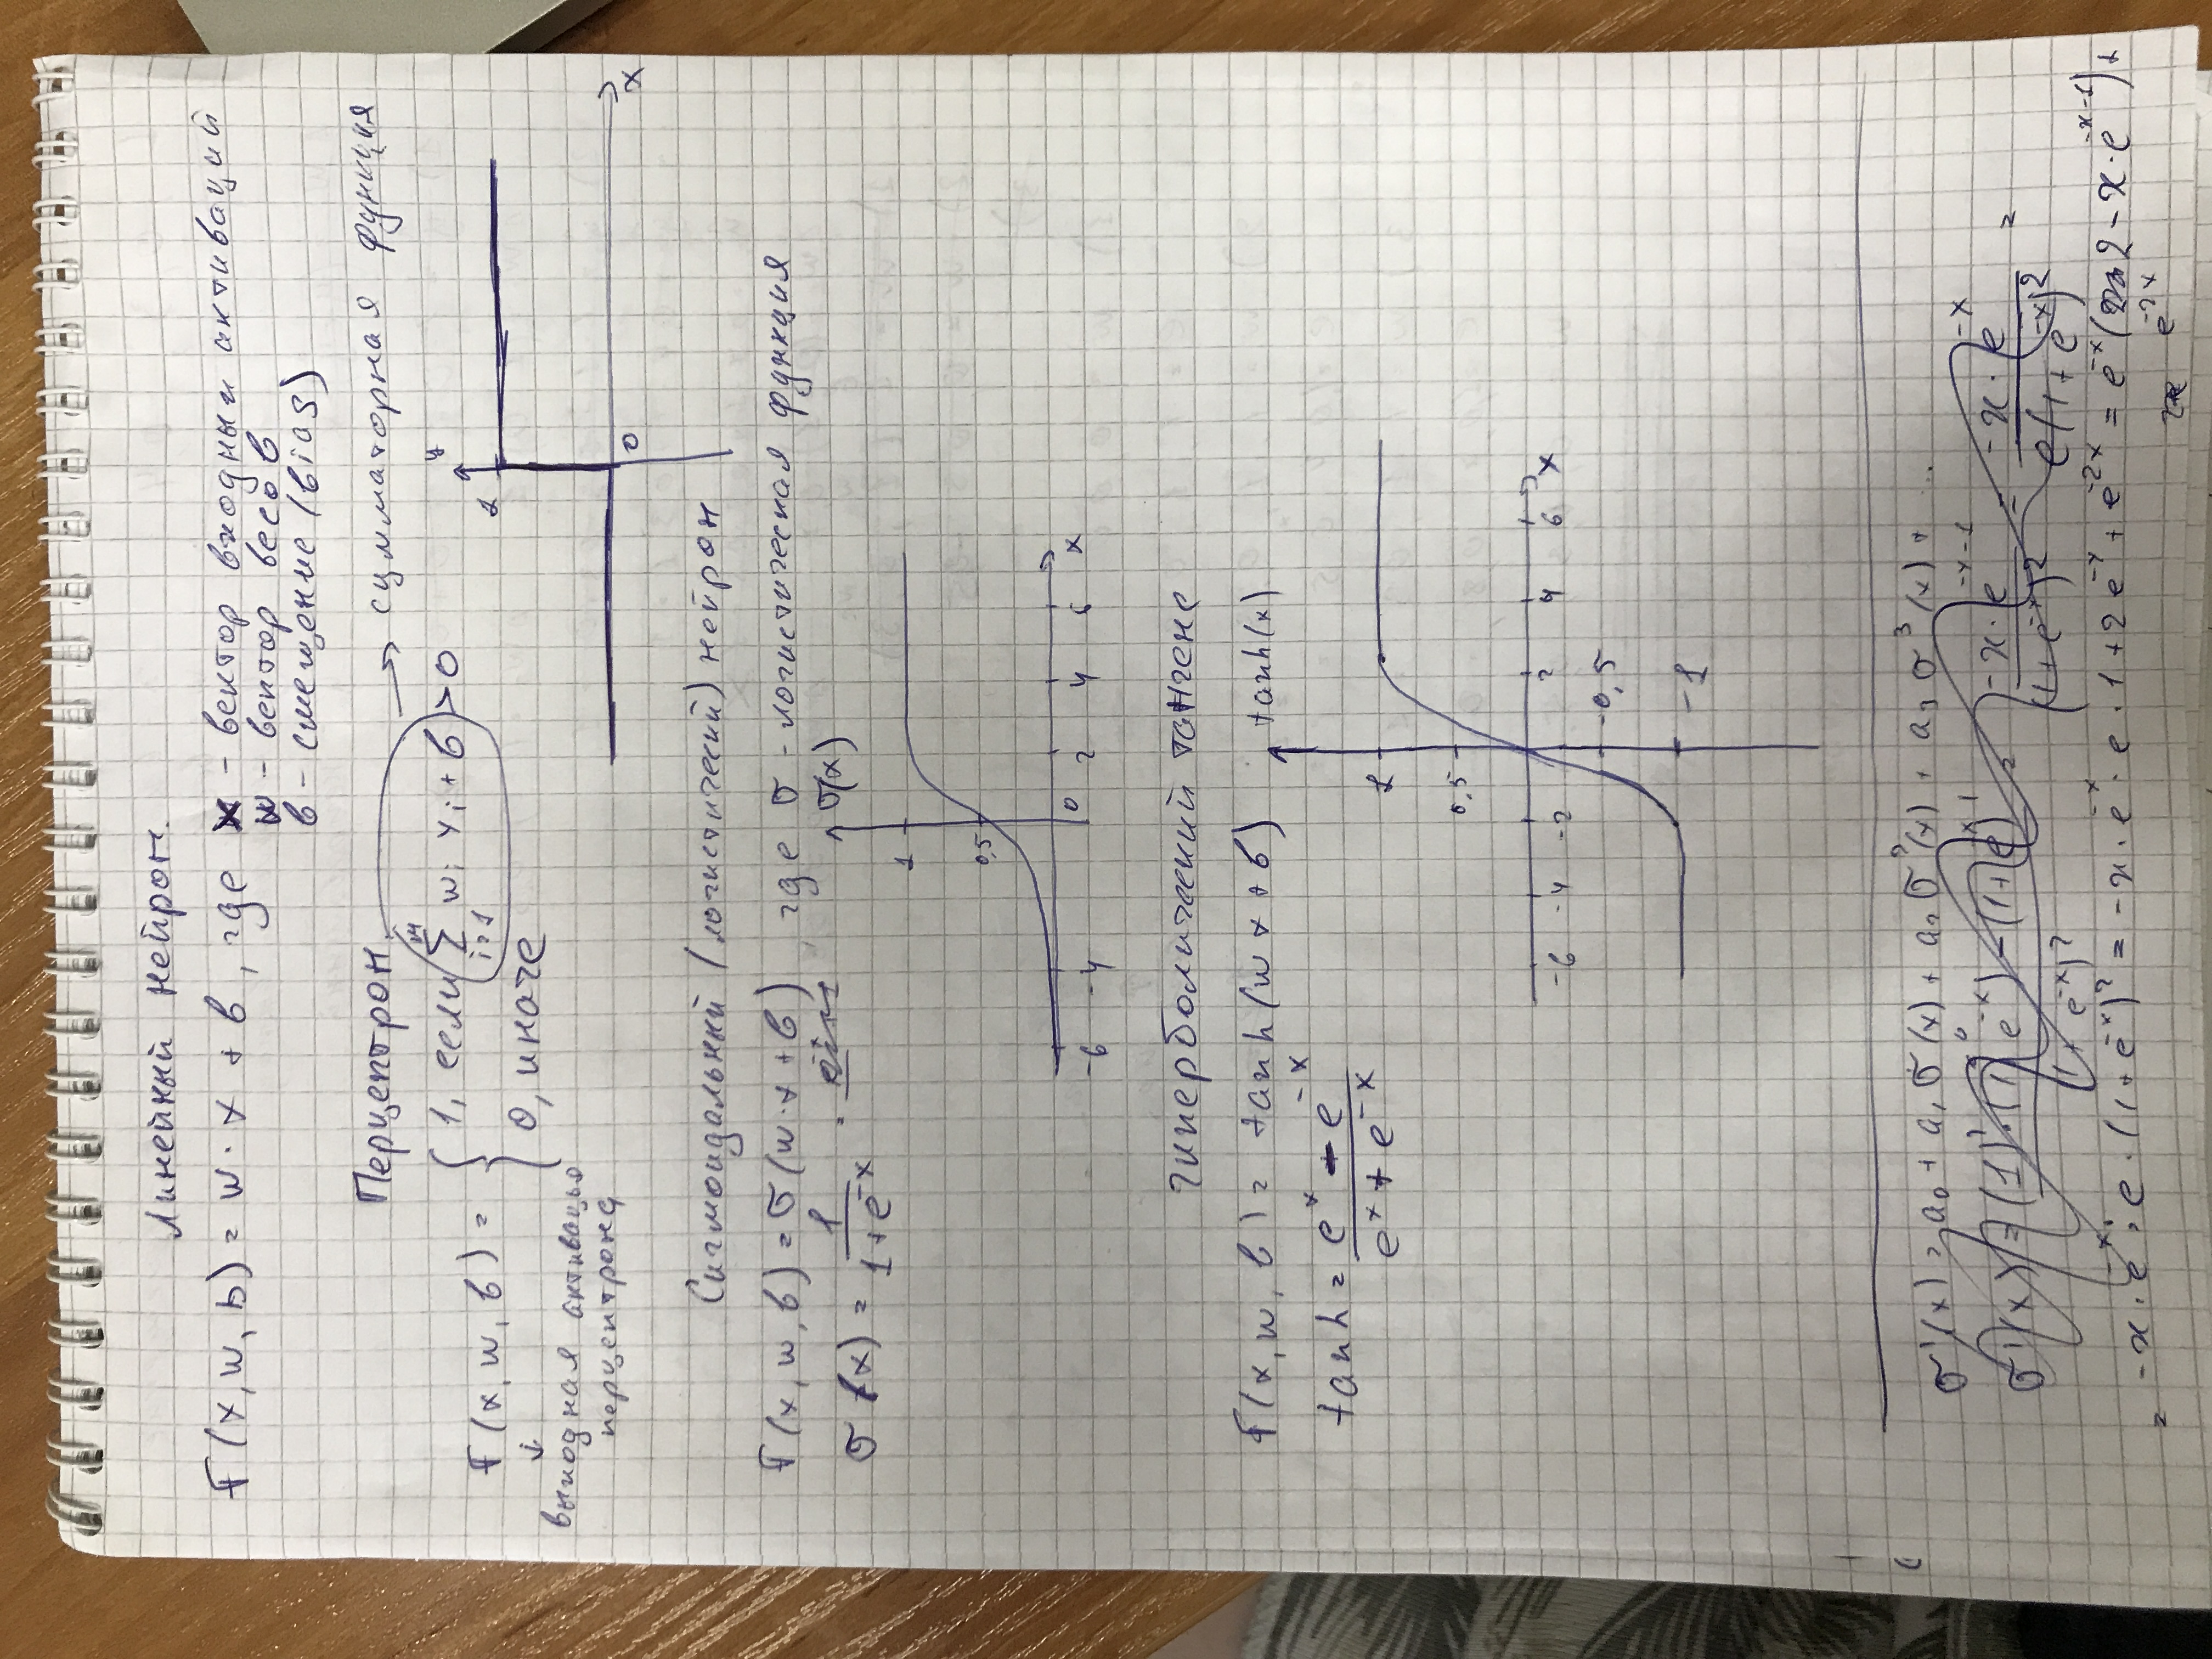 Линейный нейрон.
F(x, w, b) = w · x + b, где x - вектор входных активаций
w - вектор весов
b - смещение (bias)
Перцептрон
→ сумматорная функция
F(x, w, b) = { 1, если ∑ᵢ₌₁ᵐ wᵢ xᵢ + b > 0
0, иначе
↓
выходная активация
перцептрона
y
1
0
x
Сигмоидальный (логистический) нейрон
F(x, w, b) = σ(w·x + b), где σ - логистическая функция
σ(x) = 1/(1+e^-x) =
σ(x)
1
0,5
-6 -4 0 2 4 6 x
гиперболический тангенс
F(x, w, b) = tanh(wx + b)
tanh = (e^x - e^-x)/(e^x + e^-x)
tanh(x)
1
0,5
-6 -4 -2 2 4 6 x
-0,5
-1
σ'(x) = a₀ + a₁σ(x) + a₂σ²(x) + a₃σ³(x) + ...
σ'(x) = = (-x·e^-x-1)/(1+e^-x)² = (-x·e^-x)/(e(1+e^-x)²) =
= -x·e^-x·e·(1+e^-x)² = -x·e^-x·e·1+2e^-x+e^-2x = e^-x(2-x·e^-x-1)+
e^-2x